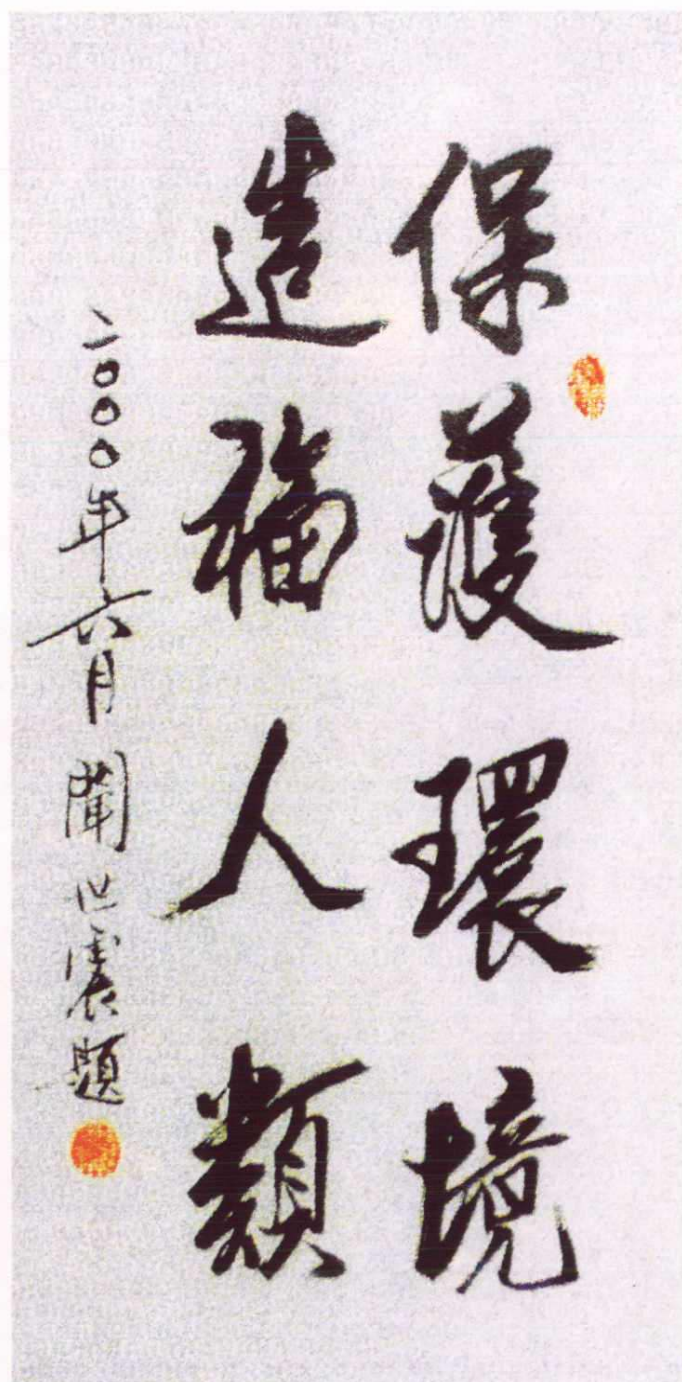 保護環境
造福人類
二000年六月 闻世震題